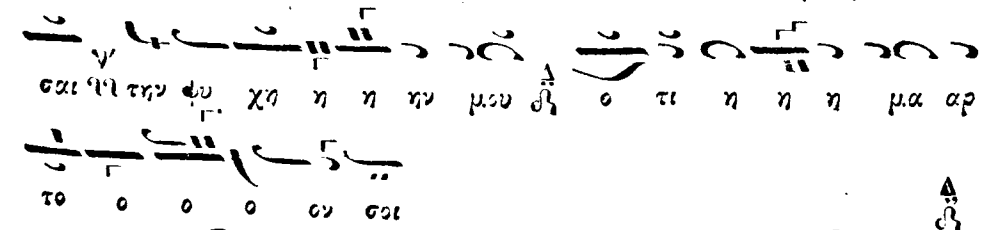 σαι την ψυ χη η η ην μου ο τι η η η μα αρ
το ο ο ο ον σοι